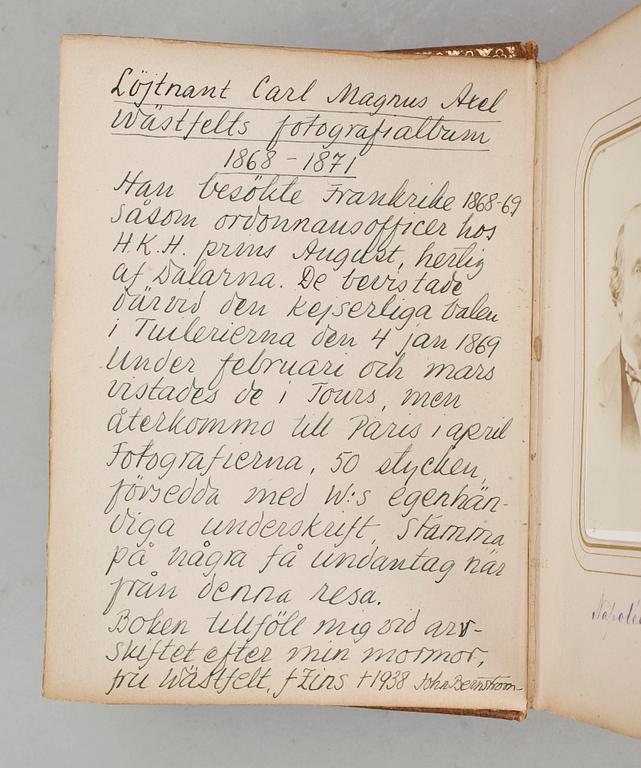 Löjtnant Carl Magnus Axel
Wästfelts fotografialbum
1868 - 1871
Han besökte Frankrike 1868-69
såsom ordonnansofficer hos
H.K.H. prins August, hertig
af Dalarna. De bevistade
därvid den kejserliga balen
i Tuilerierna den 4 jan 1869
Under februari och mars
vistades de i Tours, men
återkommo till Paris i april
Fotografierna, 50 stycken,
försedda med W:s egenhän-
diga underskrift, stamma
på några få undantag när
från denna resa.
Boken tillföll mig vid arv-
skiftet efter min mormor,
fru Wästfelt, f Zins †1938 John Bernström